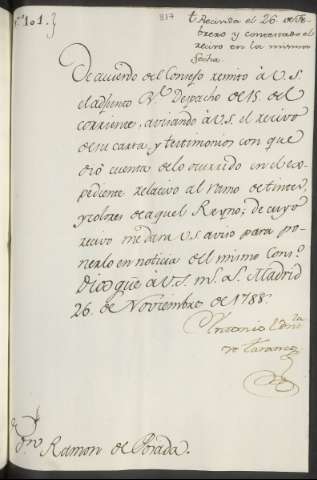 N.º 101.}
817
t Recivida el 26 de Fe-
brero y contextado el
recivo en la misma
fecha.
De acuerdo del Consejo remito à V. S.
el adjunto Rˡ. Despacho de 15. del
corriente, avisando à V. S. el recivo
de su carta, y testimonios con que
dió cuenta de lo ocurrido en el ex-
pediente relativo al Ramo de tintes,
y colores de aquel Reyno; de cuyo
recivo me dara V. S. aviso para po-
nerlo en noticia del mismo Cons.º
Dios gūe à V. S. ms. as. Madrid
26. de Noviembre de 1788.
Antonio
de Taranco
Dn. Ramon de Posada.